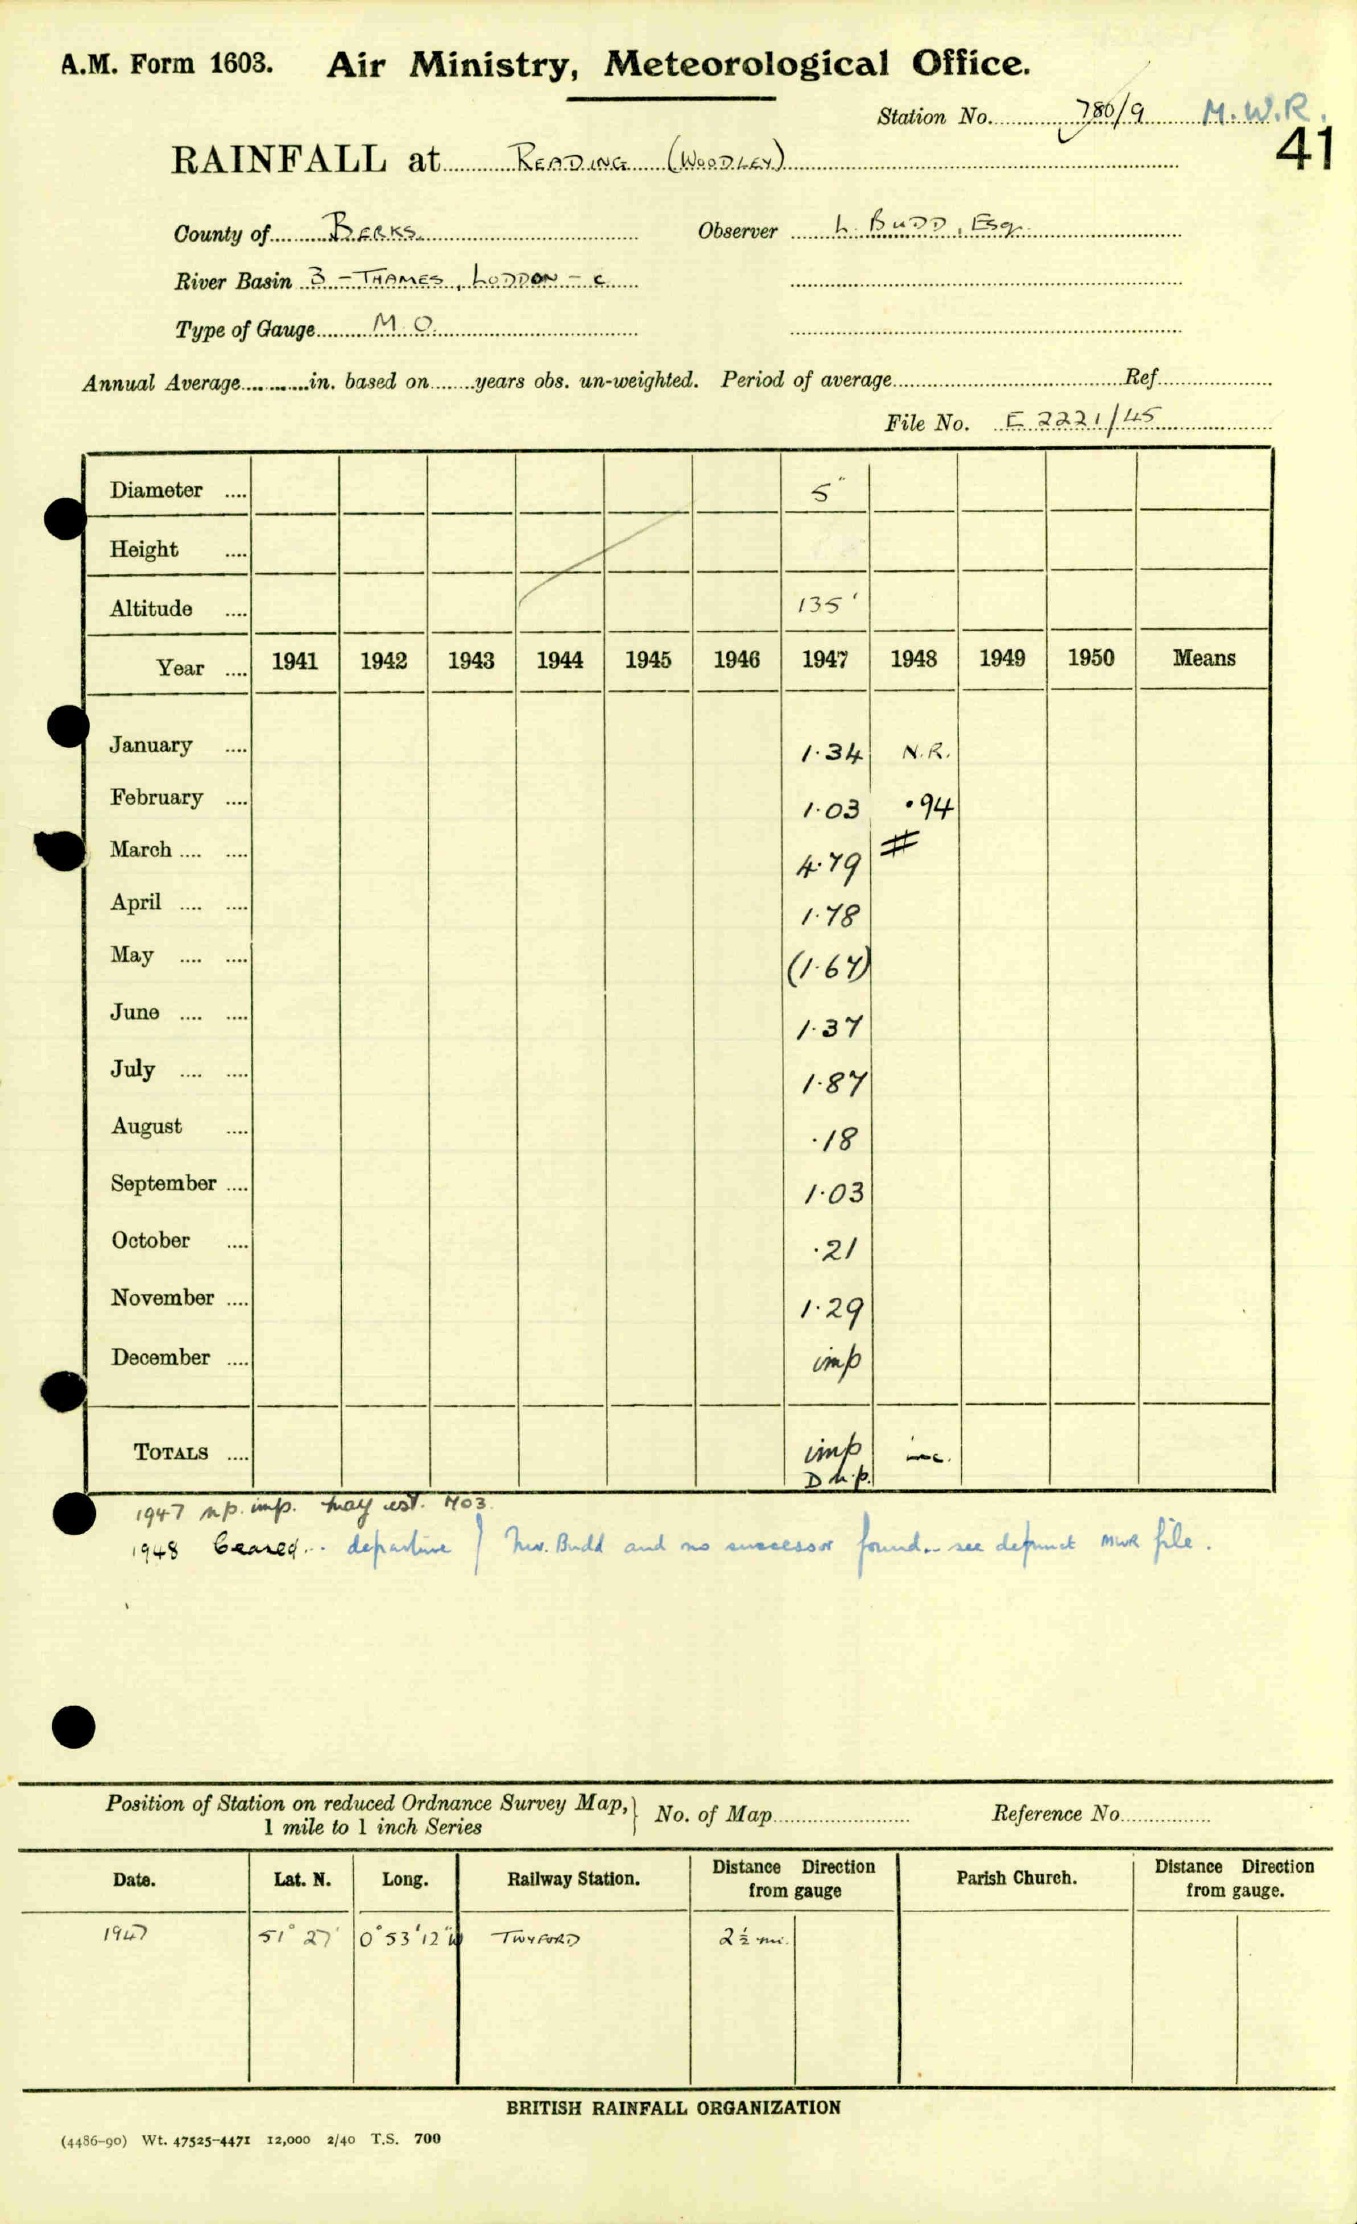 A.M. Form 1603. Air Ministry, Meteorological Office.
Station No. 780/9 M.W.R.
41
RAINFALL at READING (WOODLEY)
County of BERKS. Observer L. BUDD, Esq.
River Basin 3 - THAMES, LODDON - C
Type of Gauge M.O.
Annual Average in. based on years obs. un-weighted. Period of average Ref
File No. E 2221/45
Diameter .... 5"
Height ....
Altitude .... 135'
Year .... 1941 1942 1943 1944 1945 1946 1947 1948 1949 1950 Means
January .... 1.34 N.R.
February .... 1.03 .94
March .... .... 4.79 #
April .... .... 1.78
May .... .... (1.67)
June .... .... 1.37
July .... .... 1.87
August .... .18
September .... 1.03
October .... .21
November .... 1.29
December .... imp
TOTALS .... imp inc.
D n.p.
1947 n.p. imp. May est. MO3.
1948 Ceased... departure Mr. Budd and no successor found.. see defunct MWR file.
Position of Station on reduced Ordnance Survey Map, } No. of Map Reference No.
1 mile to 1 inch Series
Date. Lat. N. Long. Railway Station. Distance Direction from gauge Parish Church. Distance Direction from gauge.
1947 51° 27' 0° 53' 12" W TWYFORD 2½ mi.
BRITISH RAINFALL ORGANIZATION
(4486-90) Wt. 47525-4471 12,000 2/40 T.S. 700